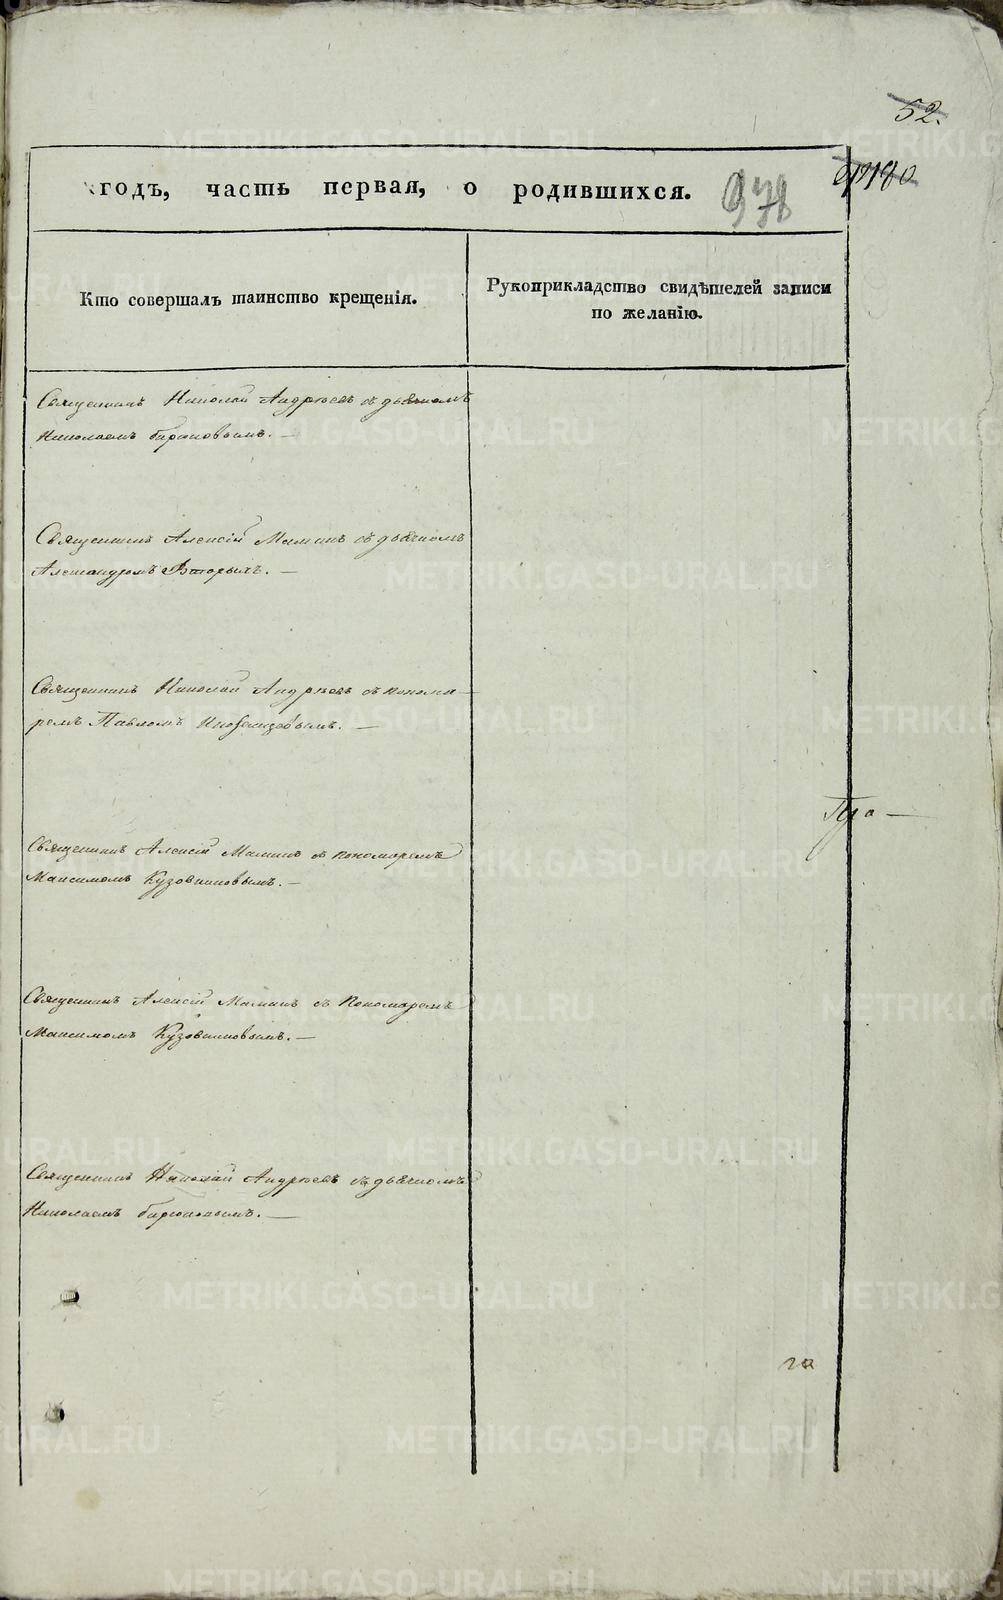 52.
годъ, часть первая, о родившихся. 978
Кто совершалъ таинство крещенія.
Рукоприкладство свидѣтелей записи
по желанію.
Священникъ Николай Андреевъ съ дьячкомъ
Николаемъ Бирюковымъ. —
Священникъ Алексій Маминъ съ дьячкомъ
Александромъ Вторыхъ. —
Священникъ Николай Андреевъ съ понома-
ремъ Павломъ —
Священникъ Алексій Маминъ съ пономаремъ
Максимомъ Кузовниковымъ. —
Священникъ Алексій Маминъ съ пономаремъ
Максимомъ Кузовниковымъ. —
Священникъ Николай Андреевъ съ дьячкомъ
Николаемъ Бирюковымъ. —
METRIKI.GASO-URAL.RU